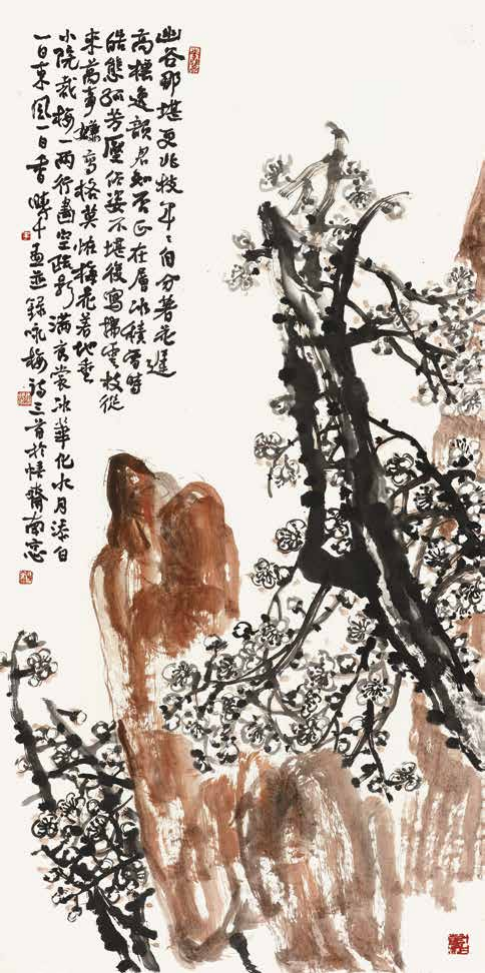 幽谷那堪更北枝年〻自分著花遲
高標逸韻君知否正在層冰積雪時
皓態孤芳壓俗姿不堪復寫拂雲枝從
來萬事嫌高格莫怪梅花著地垂
小院栽梅一兩行畫空疏影滿衣裳冰華化水月添白
一日東風一日香 画並錄咏梅詩三首於悟齋南窗